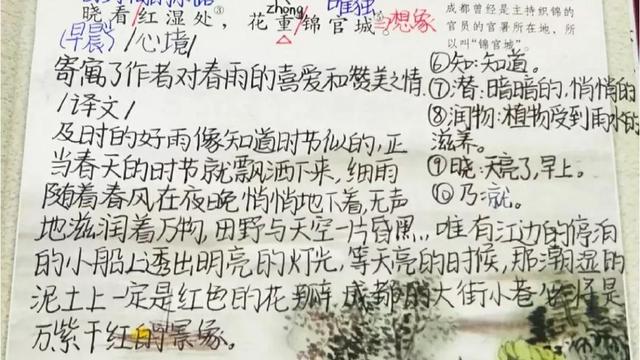 zhòng
唯独
晓看红湿处③，花重锦官城
想象
(早晨)
/心境/
寄寓了作者对春雨的喜爱和赞美之情
/译文/
及时的好雨像知道时节似的,正
当春天的时节就飘洒下来,细雨
随着春风在夜晚悄悄地下着,无声
地滋润着万物,田野与天空一片昏黑,唯有江边的停泊
的小船上透出明亮的灯光,等天亮的时候,那潮湿的
泥土上一定是红色的花瓣,成都的大街小巷必将是
万紫千红的景象。
成都曾经是主持织锦的
官员的官署所在地，所
以叫“锦官城”。
⑥知:知道。
⑦潜:暗暗的,悄悄的
⑧润物:植物受到雨水的
滋养。
⑨晓:天亮了,早上。
⑩乃:就。